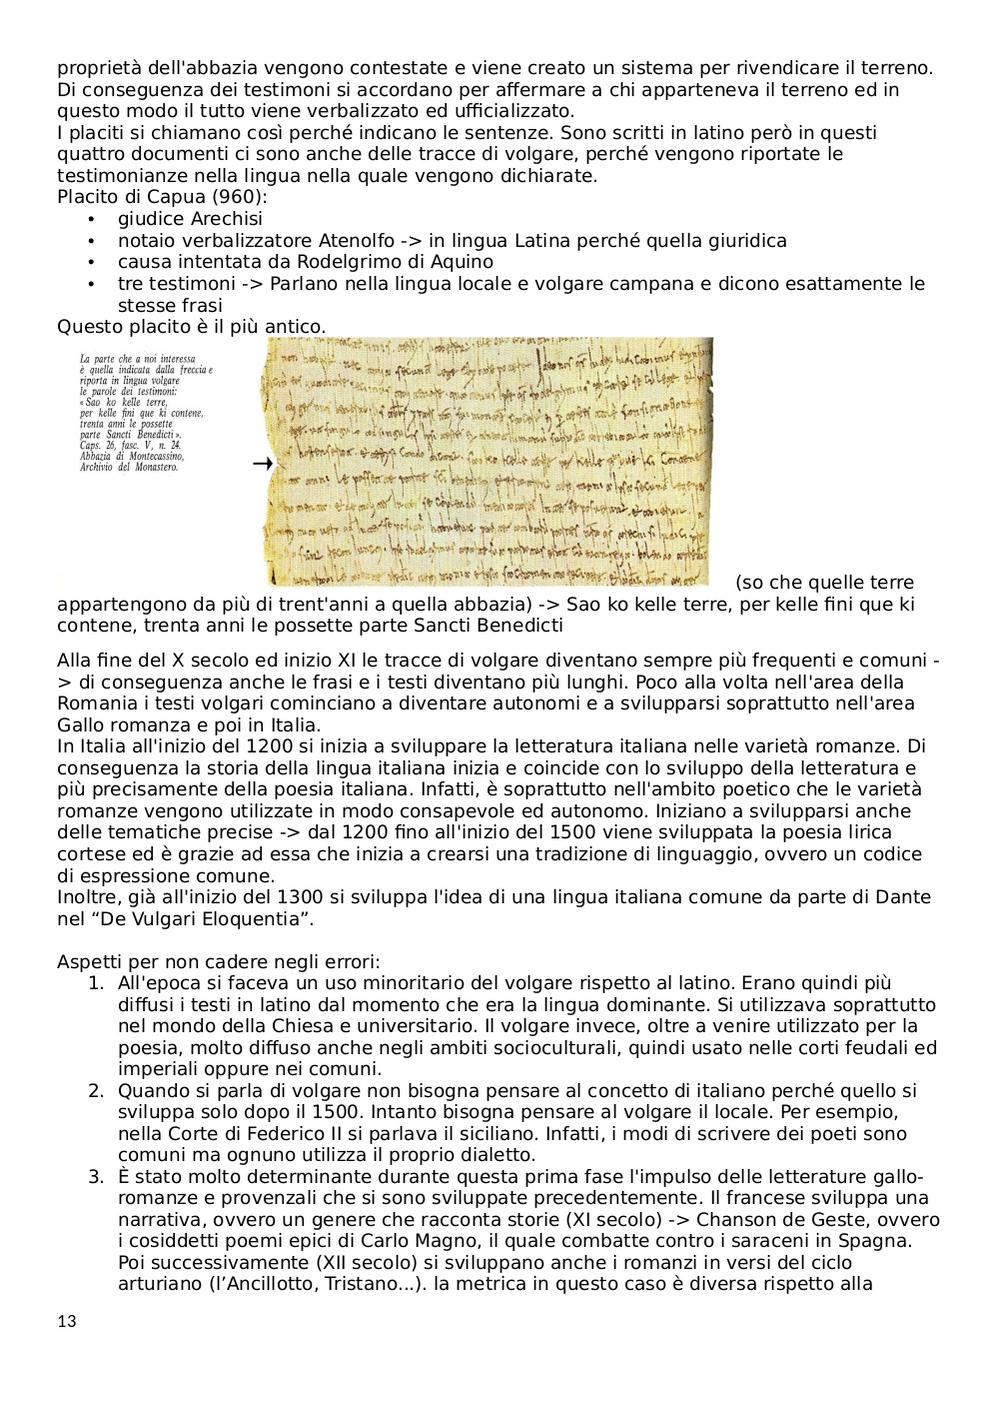 proprietà dell'abbazia vengono contestate e viene creato un sistema per rivendicare il terreno.
Di conseguenza dei testimoni si accordano per affermare a chi apparteneva il terreno ed in
questo modo il tutto viene verbalizzato ed ufficializzato.
I placiti si chiamano così perché indicano le sentenze. Sono scritti in latino però in questi
quattro documenti ci sono anche delle tracce di volgare, perché vengono riportate le
testimonianze nella lingua nella quale vengono dichiarate.
Placito di Capua (960):
• giudice Arechisi
• notaio verbalizzatore Atenolfo -> in lingua Latina perché quella giuridica
• causa intentata da Rodelgrimo di Aquino
• tre testimoni -> Parlano nella lingua locale e volgare campana e dicono esattamente le
stesse frasi
Questo placito è il più antico.
La parte che a noi interessa
è quella indicata dalla freccia e
riporta in lingua volgare
le parole dei testimoni:
«Sao ko kelle terre,
per kelle fini que ki contene,
trenta anni le possette
parte Sancti Benedicti».
Caps. 26, fasc. V, n. 24.
Abbazia di Montecassino,
Archivio del Monastero.
(so che quelle terre
appartengono da più di trent'anni a quella abbazia) -> Sao ko kelle terre, per kelle fini que ki
contene, trenta anni le possette parte Sancti Benedicti
Alla fine del X secolo ed inizio XI le tracce di volgare diventano sempre più frequenti e comuni -
> di conseguenza anche le frasi e i testi diventano più lunghi. Poco alla volta nell'area della
Romania i testi volgari cominciano a diventare autonomi e a svilupparsi soprattutto nell'area
Gallo romanza e poi in Italia.
In Italia all'inizio del 1200 si inizia a sviluppare la letteratura italiana nelle varietà romanze. Di
conseguenza la storia della lingua italiana inizia e coincide con lo sviluppo della letteratura e
più precisamente della poesia italiana. Infatti, è soprattutto nell'ambito poetico che le varietà
romanze vengono utilizzate in modo consapevole ed autonomo. Iniziano a svilupparsi anche
delle tematiche precise -> dal 1200 fino all'inizio del 1500 viene sviluppata la poesia lirica
cortese ed è grazie ad essa che inizia a crearsi una tradizione di linguaggio, ovvero un codice
di espressione comune.
Inoltre, già all'inizio del 1300 si sviluppa l'idea di una lingua italiana comune da parte di Dante
nel “De Vulgari Eloquentia”.
Aspetti per non cadere negli errori:
1. All'epoca si faceva un uso minoritario del volgare rispetto al latino. Erano quindi più
diffusi i testi in latino dal momento che era la lingua dominante. Si utilizzava soprattutto
nel mondo della Chiesa e universitario. Il volgare invece, oltre a venire utilizzato per la
poesia, molto diffuso anche negli ambiti socioculturali, quindi usato nelle corti feudali ed
imperiali oppure nei comuni.
2. Quando si parla di volgare non bisogna pensare al concetto di italiano perché quello si
sviluppa solo dopo il 1500. Intanto bisogna pensare al volgare il locale. Per esempio,
nella Corte di Federico II si parlava il siciliano. Infatti, i modi di scrivere dei poeti sono
comuni ma ognuno utilizza il proprio dialetto.
3. È stato molto determinante durante questa prima fase l'impulso delle letterature gallo-
romanze e provenzali che si sono sviluppate precedentemente. Il francese sviluppa una
narrativa, ovvero un genere che racconta storie (XI secolo) -> Chanson de Geste, ovvero
i cosiddetti poemi epici di Carlo Magno, il quale combatte contro i saraceni in Spagna.
Poi successivamente (XII secolo) si sviluppano anche i romanzi in versi del ciclo
arturiano (l’Ancillotto, Tristano...). la metrica in questo caso è diversa rispetto alla
13